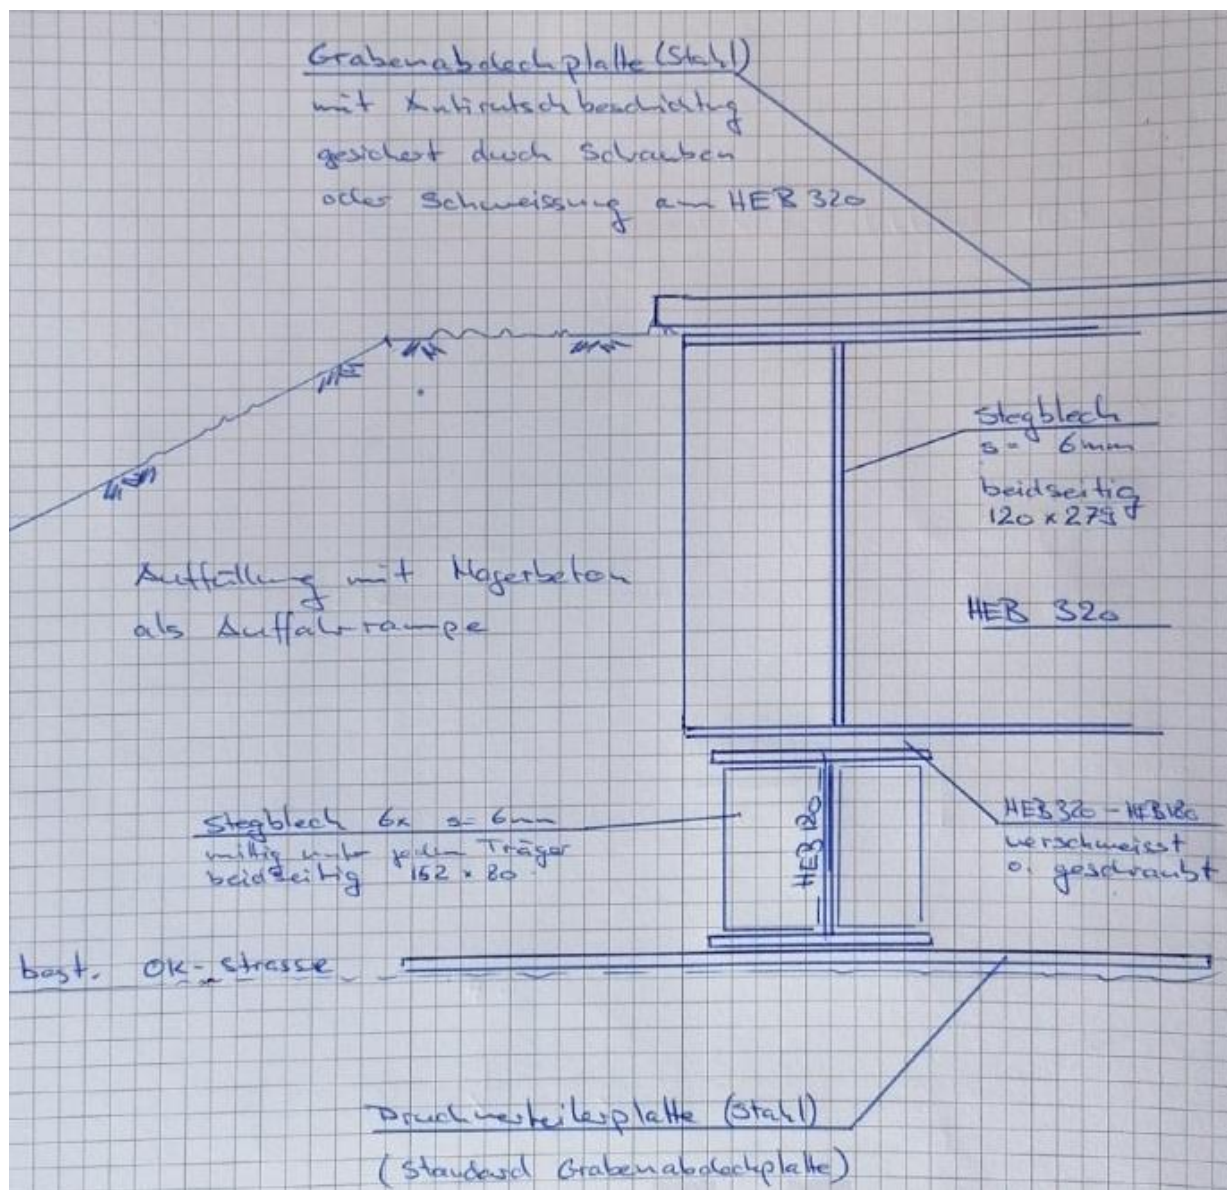 Grabenabdeckplatte (Stahl)
mit Antirutschbeschichtg
gesichert durch Schrauben
oder Schweissung am HEB 320
Stegblech
s= 6mm
beidseitig
120 x 279
Auffüllung mit Magerbeton
als Auffahrrampe
HEB 320
Stegblech 6x s=6mm
mittig unter jedem Träger
beidseitig 152 x 80
HEB 180
HEB 320 - HEB 180
verschweisst
o. geschraubt
best. OK-Strasse
Druckverteilerplatte (Stahl)
(Standard Grabenabdeckplatte)